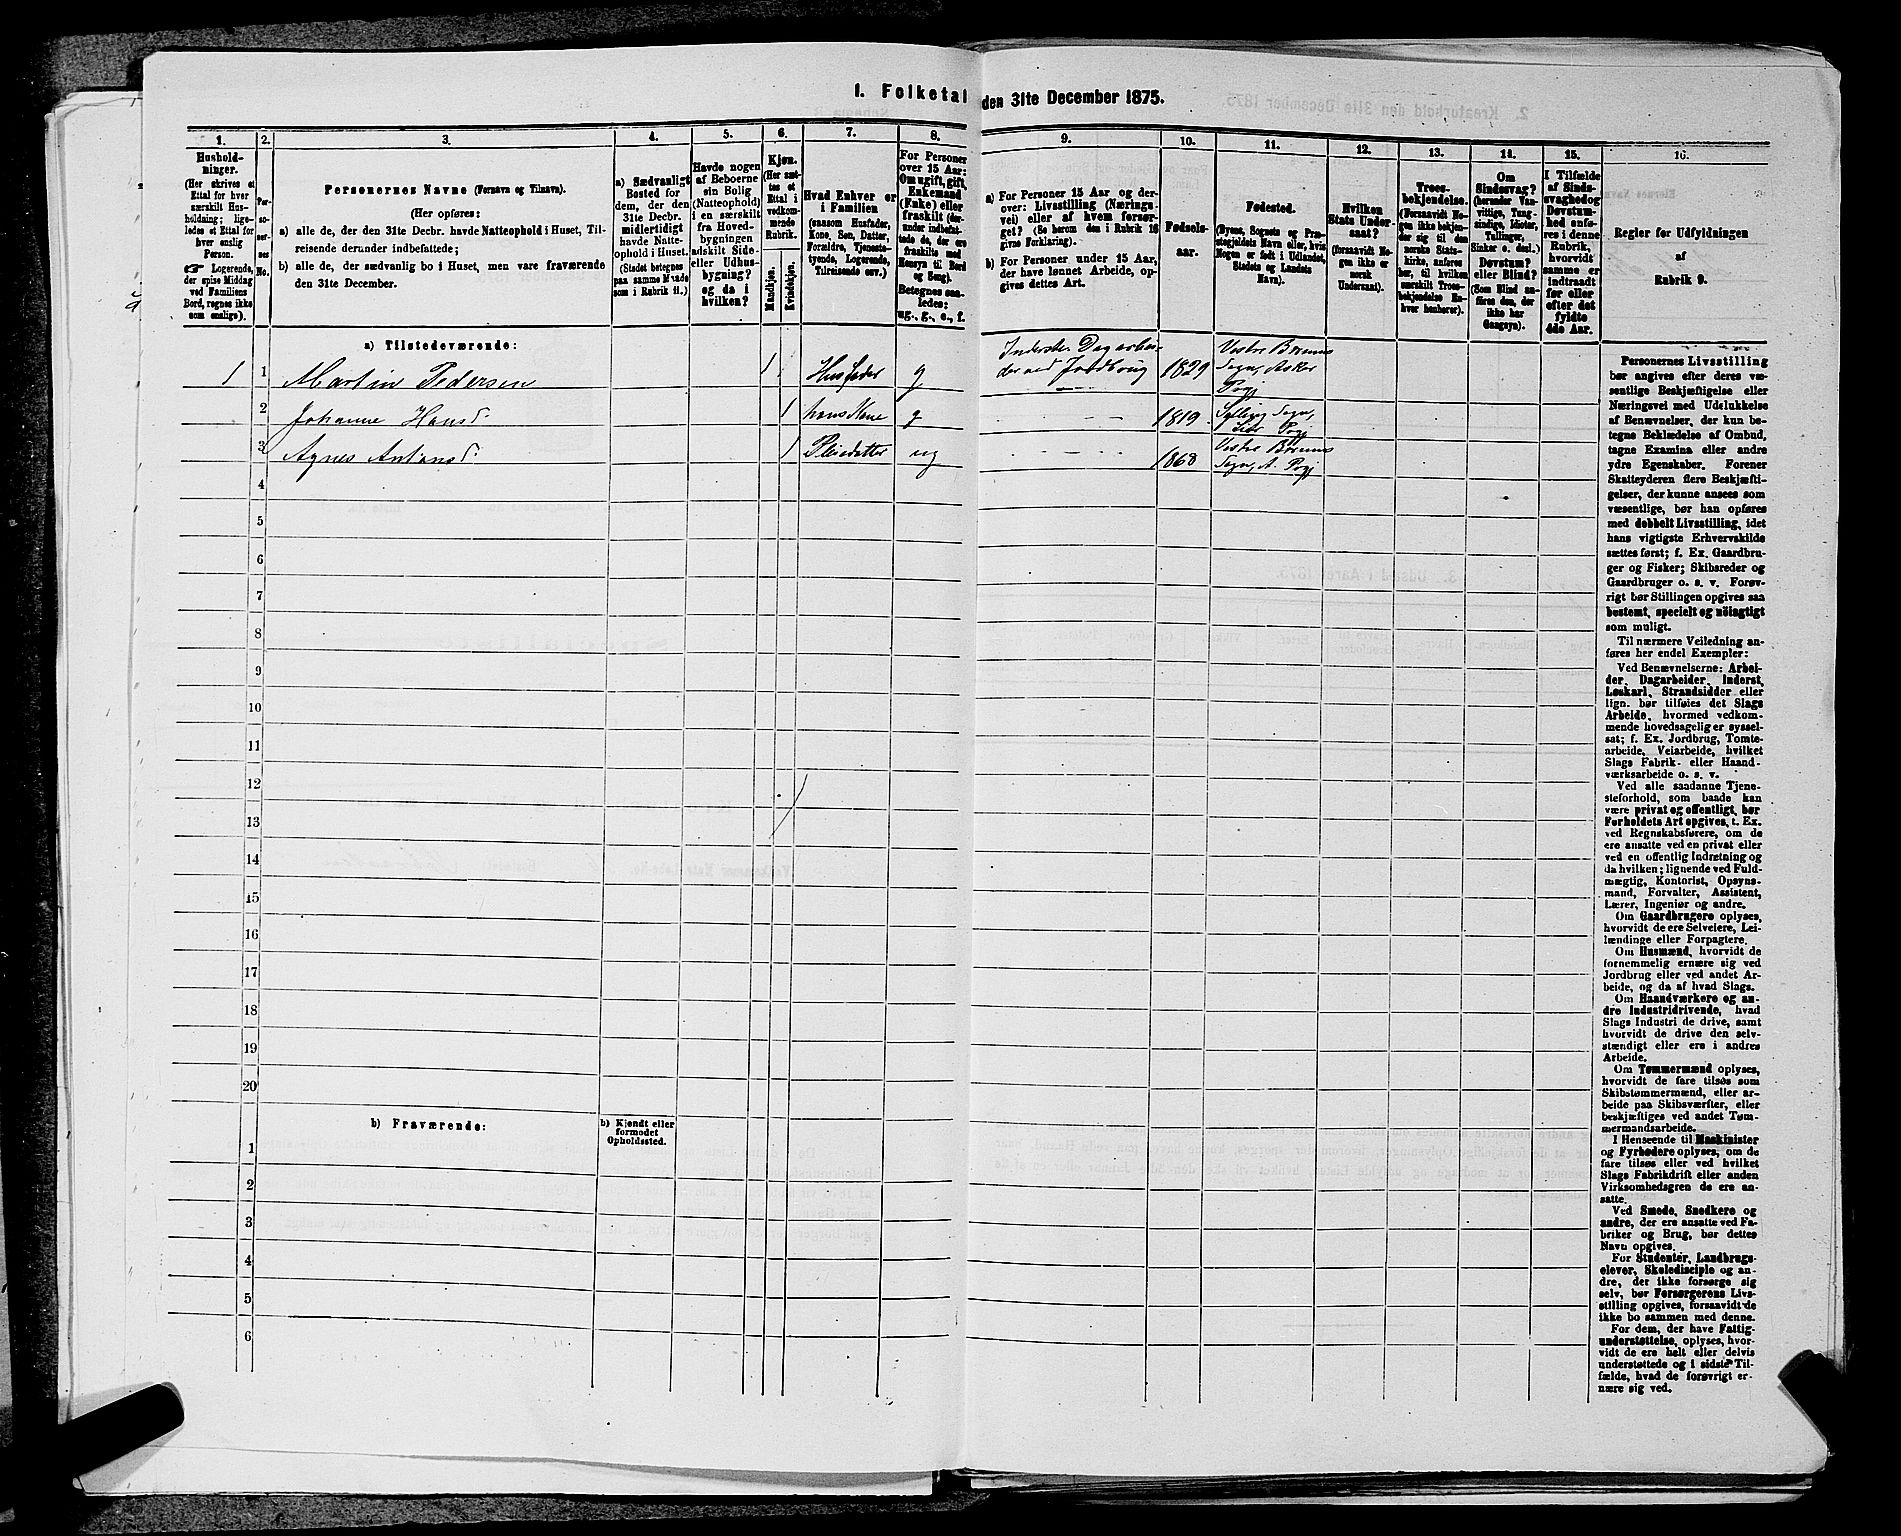 1. Folketal den 31te December 1875.
1.
2.
3.
4.
5.
6.
7.
8.
9.
10.
11.
12.
13.
14.
15.
16.
Hushold-
ninger.
(Her skrives et
Ettal for hver
særskilt Hus-
holdning; lige-
ledes et Ettal for
hver enslig
Person.
☞ Logerende,
der spise Middag
ved Familiens
Bord, regnes ikke
som enslige).
Per-
so-
ner-
nes
No.
Personernes Navne (Fornavn og Tilnavn).
(Her opføres:
a) alle de, der den 31te Decbr. havde Natteophold i Huset, Til-
reisende derunder indbefattede;
b) alle de, der sædvanlig bo i Huset, men vare fraværende
den 31te December.
a) Sædvanligt
Bosted for
dem, der den
31te Decbr.
midlertidigt
havde Natte-
ophold i Huset.
(Stedet betegnes
paa samme Maade
som i Rubrik 11.)
Havde nogen
af Beboerne
sin Bolig
(Natteophold)
i en særskilt
fra Hoved-
bygningen
adskilt Side
eller Udhus-
bygning?
og da i
hvilken?
Kjøn.
(Her sæt-
tes et
Ettal i
vedkom-
mende
Rubrik.
Mandkjøn.
Kvindekjøn.
Hvad Enhver er
i Familien
(saasom Husfader,
Kone, Søn, Datter,
Forældre, Tjeneste-
tyende, Logerende,
Tilreisende osv.)
For Personer
over 15 Aar:
Om ugift, gift,
Enkemand
(Enke) eller
fraskilt (der-
under indbefat-
tede de, der ere
fraskilte med
Hensyn til Bord
og Seng).
Betegnes saa-
ledes:
ug., g., e., f.
a) For Personer 15 Aar og der-
over: Livsstilling (Nærings-
vei) eller af hvem forsør-
get? (Se herom den i Rubrik 16
givne Forklaring).
b) For Personer under 15 Aar,
der have lønnet Arbeide, op-
gives dettes Art.
Fødsels-
aar.
Fødested.
(Byens, Sognets og Præ-
stegjeldets Navn eller, hvis
Nogen er født i Udlandet,
Stedets og Landets
Navn).
Hvilken
Stats Under-
saat?
(forsaavidt No-
gen ikke er
norsk
Undersaat).
Troes-
bekjendelse.
(Forsaavidt No-
gen ikke bekjen-
der sig til den
norske Stats-
kirke, anføres
her, til hvilken
særskilt Troes-
bekjendelse En-
hver henhører).
Om
Sindssvag?
(herunder Van-
vittige, Tung-
sindige, Idioter,
Tullinger,
Sinker o. desl.)
Døvstum?
eller Blind?
(Som Blind an-
føres den, der
ikke har
Gangsyn).
I Tilfælde
af Sinds-
svaghed og
Døvstum-
hed anfø-
res i denne
Rubrik,
hvorvidt
samme er
indtraadt
før eller
efter det
fyldte
4de Aar.
Regler for Udfyldningen
af
Rubrik 9.
a) Tilstedeværende:
1 1 Martin Pedersen 1 Husfader g Inderste Dagarbei-
der ved Jordbrug 1829 Vestre Bærums
Sogn, Asker
Pgj
2 Johanne Hansd. 1 hans Kone g 1819. Sylling Sogn,
Lier Pgj
3 Agnes Antonsd. 1 Pleiedatter ug 1868 Vestre Bærums
Sogn, A. Pgj
4
5
6
7
8
9
10
11
12
13
14
15
16
17
18
19
20
b) Fraværende:
b) Kjendt eller
formodet
Opholdssted.
1
2
3
4
5
6
Personernes Livsstilling
bør angives efter deres væ-
sentlige Beskjæftigelse eller
Næringsvei med Udelukkelse
af Benævnelser, der kun be-
tegne Beklædelse af Ombud,
tagne Examina eller andre
ydre Egenskaber. Forener
Skatteyderen flere Beskjæfti-
gelser, der kunne ansees som
væsentlige, bør han opføres
med dobbelt Livsstilling, idet
hans vigtigste Erhvervskilde
sættes først; f. Ex. Gaardbru-
ger og Fisker; Skibsreder og
Gaardbruger o. s. v. Forøv-
rigt bør Stillingen opgives saa
bestemt, specielt og nöiagtigt
som muligt.
Til nærmere Veiledning an-
føres her endel Exempler:
Ved Benævnelserne: Arbei-
der, Dagarbeider, Inderst,
Løskarl, Strandsidder eller
lign. bør tilføies det Slags
Arbeide, hvormed vedkom-
mende hovedsagelig er syssel-
sat; f. Ex. Jordbrug, Tomte-
arbeide, Veiarbeide, hvilket
Slags Fabrik- eller Haand-
værksarbeide o. s. v.
Ved alle saadanne Tjene-
steforhold, som baade kan
være privat og offentligt, bør
Forholdets Art opgives, t. Ex.
ved Regnskabsførere, om de
ere ansatte ved en privat eller
ved en offentlig Indretning og
da hvilken; lignende ved Fuld-
mægtig, Kontorist, Opsyns-
mand, Forvalter, Assistent,
Lærer, Ingeniør og andre.
Om Gaardbrugere oplyses,
hvorvidt de ere Selveiere, Lei-
lændinge eller Forpagtere.
Om Husmænd, hvorvidt de
fornemmelig ernære sig ved
Jordbrug eller ved andet Ar-
beide, og da af hvad Slags.
Om Haandværkere og an-
dre Industridrivende, hvad
Slags Industri de drive, samt
hvorvidt de drive den selv-
stændigt eller ere i andres
Arbeide.
Om Tømmermænd oplyses,
hvorvidt de fare tilsøs som
Skibstømmermænd, eller ar-
beide paa Skibsværfter, eller
beskjæftiges ved andet Tøm-
mermandsarbeide.
I Henseende til Maskinister
og Fyrbødere oplyses, om de
fare tilsøs eller ved hvilket
Slags Fabrikdrift eller anden
Virksomhedsgren de ere an-
satte.
Ved Smede, Snedkere og
andre, der ere ansatte ved Fa-
briker og Brug, bør dettes
Navn opgives.
For Studenter, Landbrugs-
elever, Skoledisciple og an-
dre, der ikke forsørge sig
selv, bør Forsørgerens Livs-
stilling opgives, forsaavidt de
ikke bo sammen med denne.
For dem, der have Fattig-
understøttelse, oplyses, hvor-
vidt de ere helt eller delvis
understøttede og i sidste Til-
fælde, hvad de forøvrigt er-
nære sig ved.